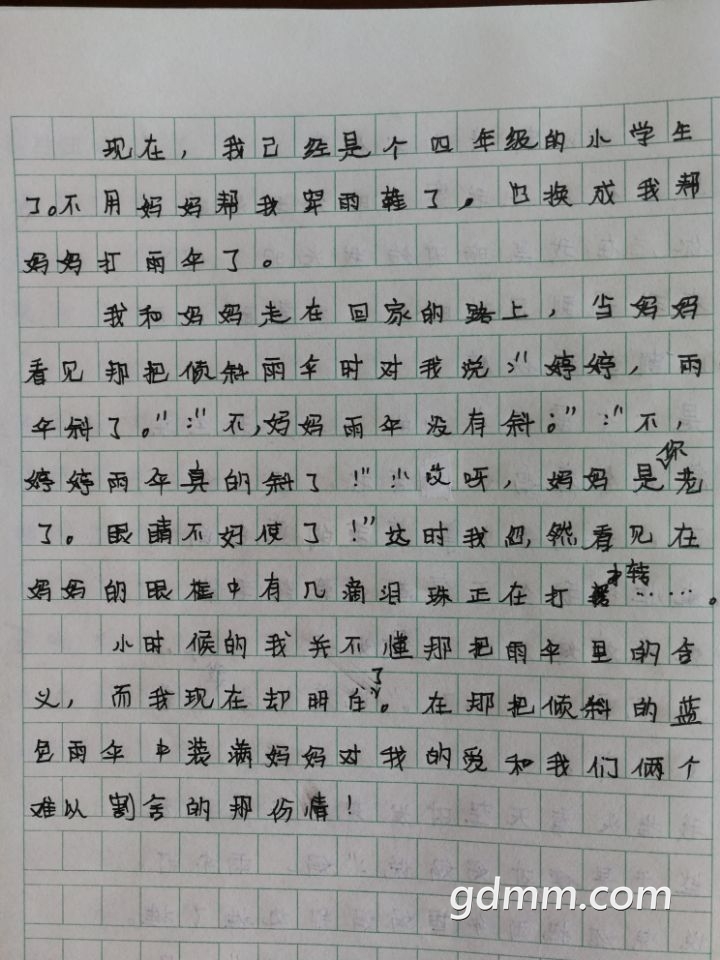 现在，我已经是个四年级的小学生
了。不用妈妈帮我穿雨鞋了。也换成我帮
妈妈打雨伞了。
我和妈妈走在回家的路上，当妈妈
看见那把倾斜雨伞时对我说：“婷婷，雨
伞斜了。”：“不，妈妈雨伞没有斜。”：“不，
婷婷雨伞真的斜了！”：“哎呀，妈妈是你老
了。眼睛不好使了！”这时我忽然看见在
妈妈的眼框中有几滴泪珠正在打转……。
小时候的我并不懂那把雨伞里的含
义，而我现在却明白了。在那把倾斜的蓝
色雨伞中装满妈妈对我的爱和我们俩个
难以割舍的那份情！
gdmm.com